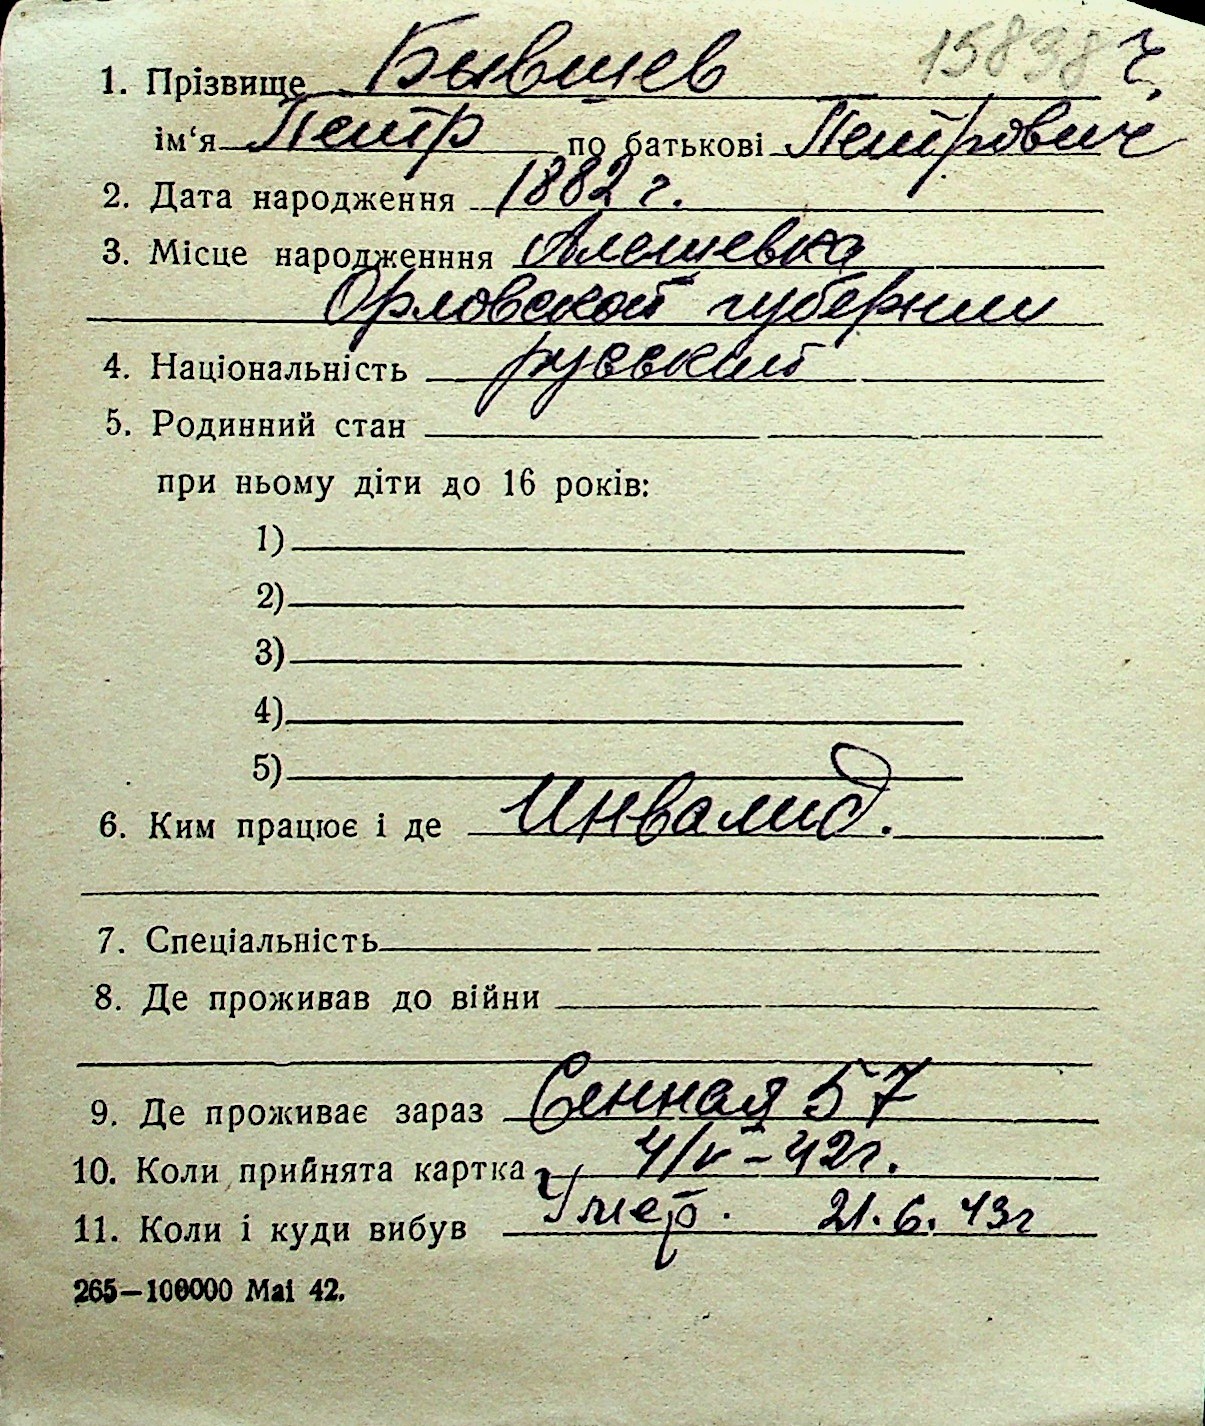 15898 г.
1. Прізвище Бывшев
ім‘я Петр по батькові Петрович
2. Дата народження 1882 г.
3. Місце народженння Алешевка
Орловской губернии
4. Національність русский
5. Родинний стан
при ньому діти до 16 років:
1)
2)
3)
4)
5)
6. Ким працює і де Инвалид.
7. Спеціальність
8. Де проживав до війни
9. Де проживає зараз Сенная 57
10. Коли прийнята картка 4/V-42г.
11. Коли і куди вибув Умер. 21.6.43г
265—100000 Mai 42.